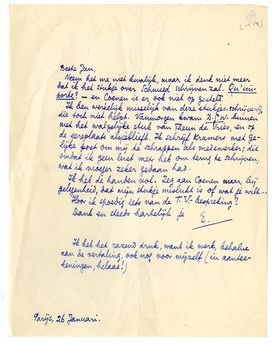 Beste Jan,
Neem het me niet kwalijk, maar ik denk niet meer
dat ik het stukje over schrijven zal. Qu'im-
porte? — en Coenen is er ook niet op gesteld.
Ik ben werkelijk misselijk van deze stukjes-schrijverij,
die toch niet helpt. Vanmorgen kwam binnen
met het walgelijke stuk van Theun de Vries en op
de ereplaats alsjeblieft. Ik schrijf Kramers met ge-
lijke post om mij te schrappen als medewerker; dit
omdat ik geen lust meer heb om terug te schrijven,
wat ik vroeger zeker gedaan had.
Ik heb de handen vol. Zeg aan Coenen maar, bij
gelegenheid, dat mijn stukje mislukt is of wat je wilt...
Hoor ik spoedig iets van de T.V.-bespreking?
Dank en steeds hartelijk je E.
Ik heb het razend druk, want ik werk, behalve
aan de vertaling, ook nog voor mijzelf (in aantee-
keningen, helaas!)
Parijs, 26 Januari.